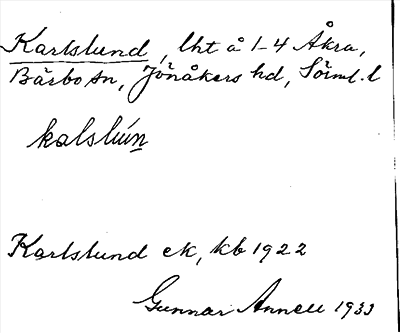 Karlslund, lht å 1-4 Åkra,
Bärbo sn, Jönåkers hd, Söiml. l
kalslun
Karlslund ek, kb 1922
Gunnar Annell 1933